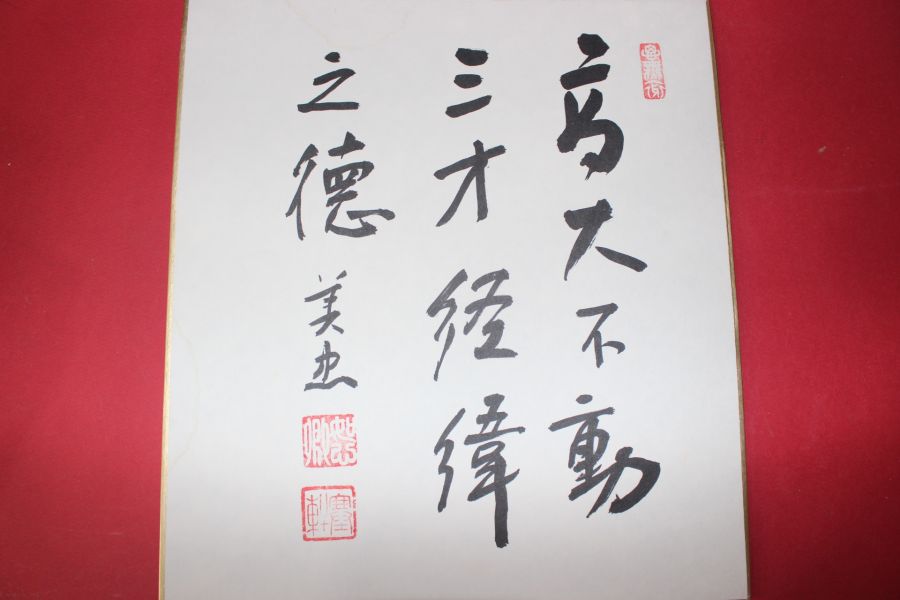 高大不動
三才経緯
之徳
美忠